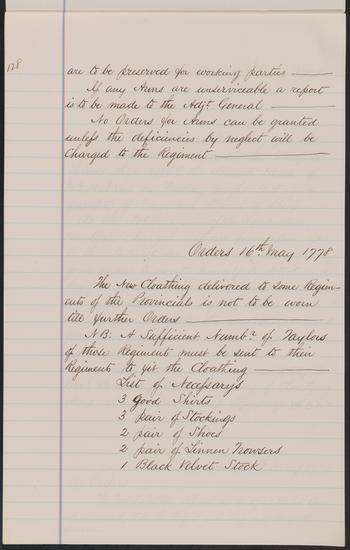 128
are to be preserved for working parties —
If any Arms are unserviceable a report
is to be made to the Adjt. General —
No Orders for Arms can be granted
unless the deficiencies by neglect will be
Charged to the Regiment —
Orders 16th May 1778
The New Cloathing delivered to some Regim-
ents of the Provincials is not to be worn
till further Orders —
NB: A Sufficient Numbr. of Taylors
of those Regiments must be sent to their
Regiments to fit the Cloathing —
List of Necessarys
3 Good Shirts
3 pair of Stockings
2 pair of Shoes
2 pair of Linnen Trowsers
1 Black Velvet Stock